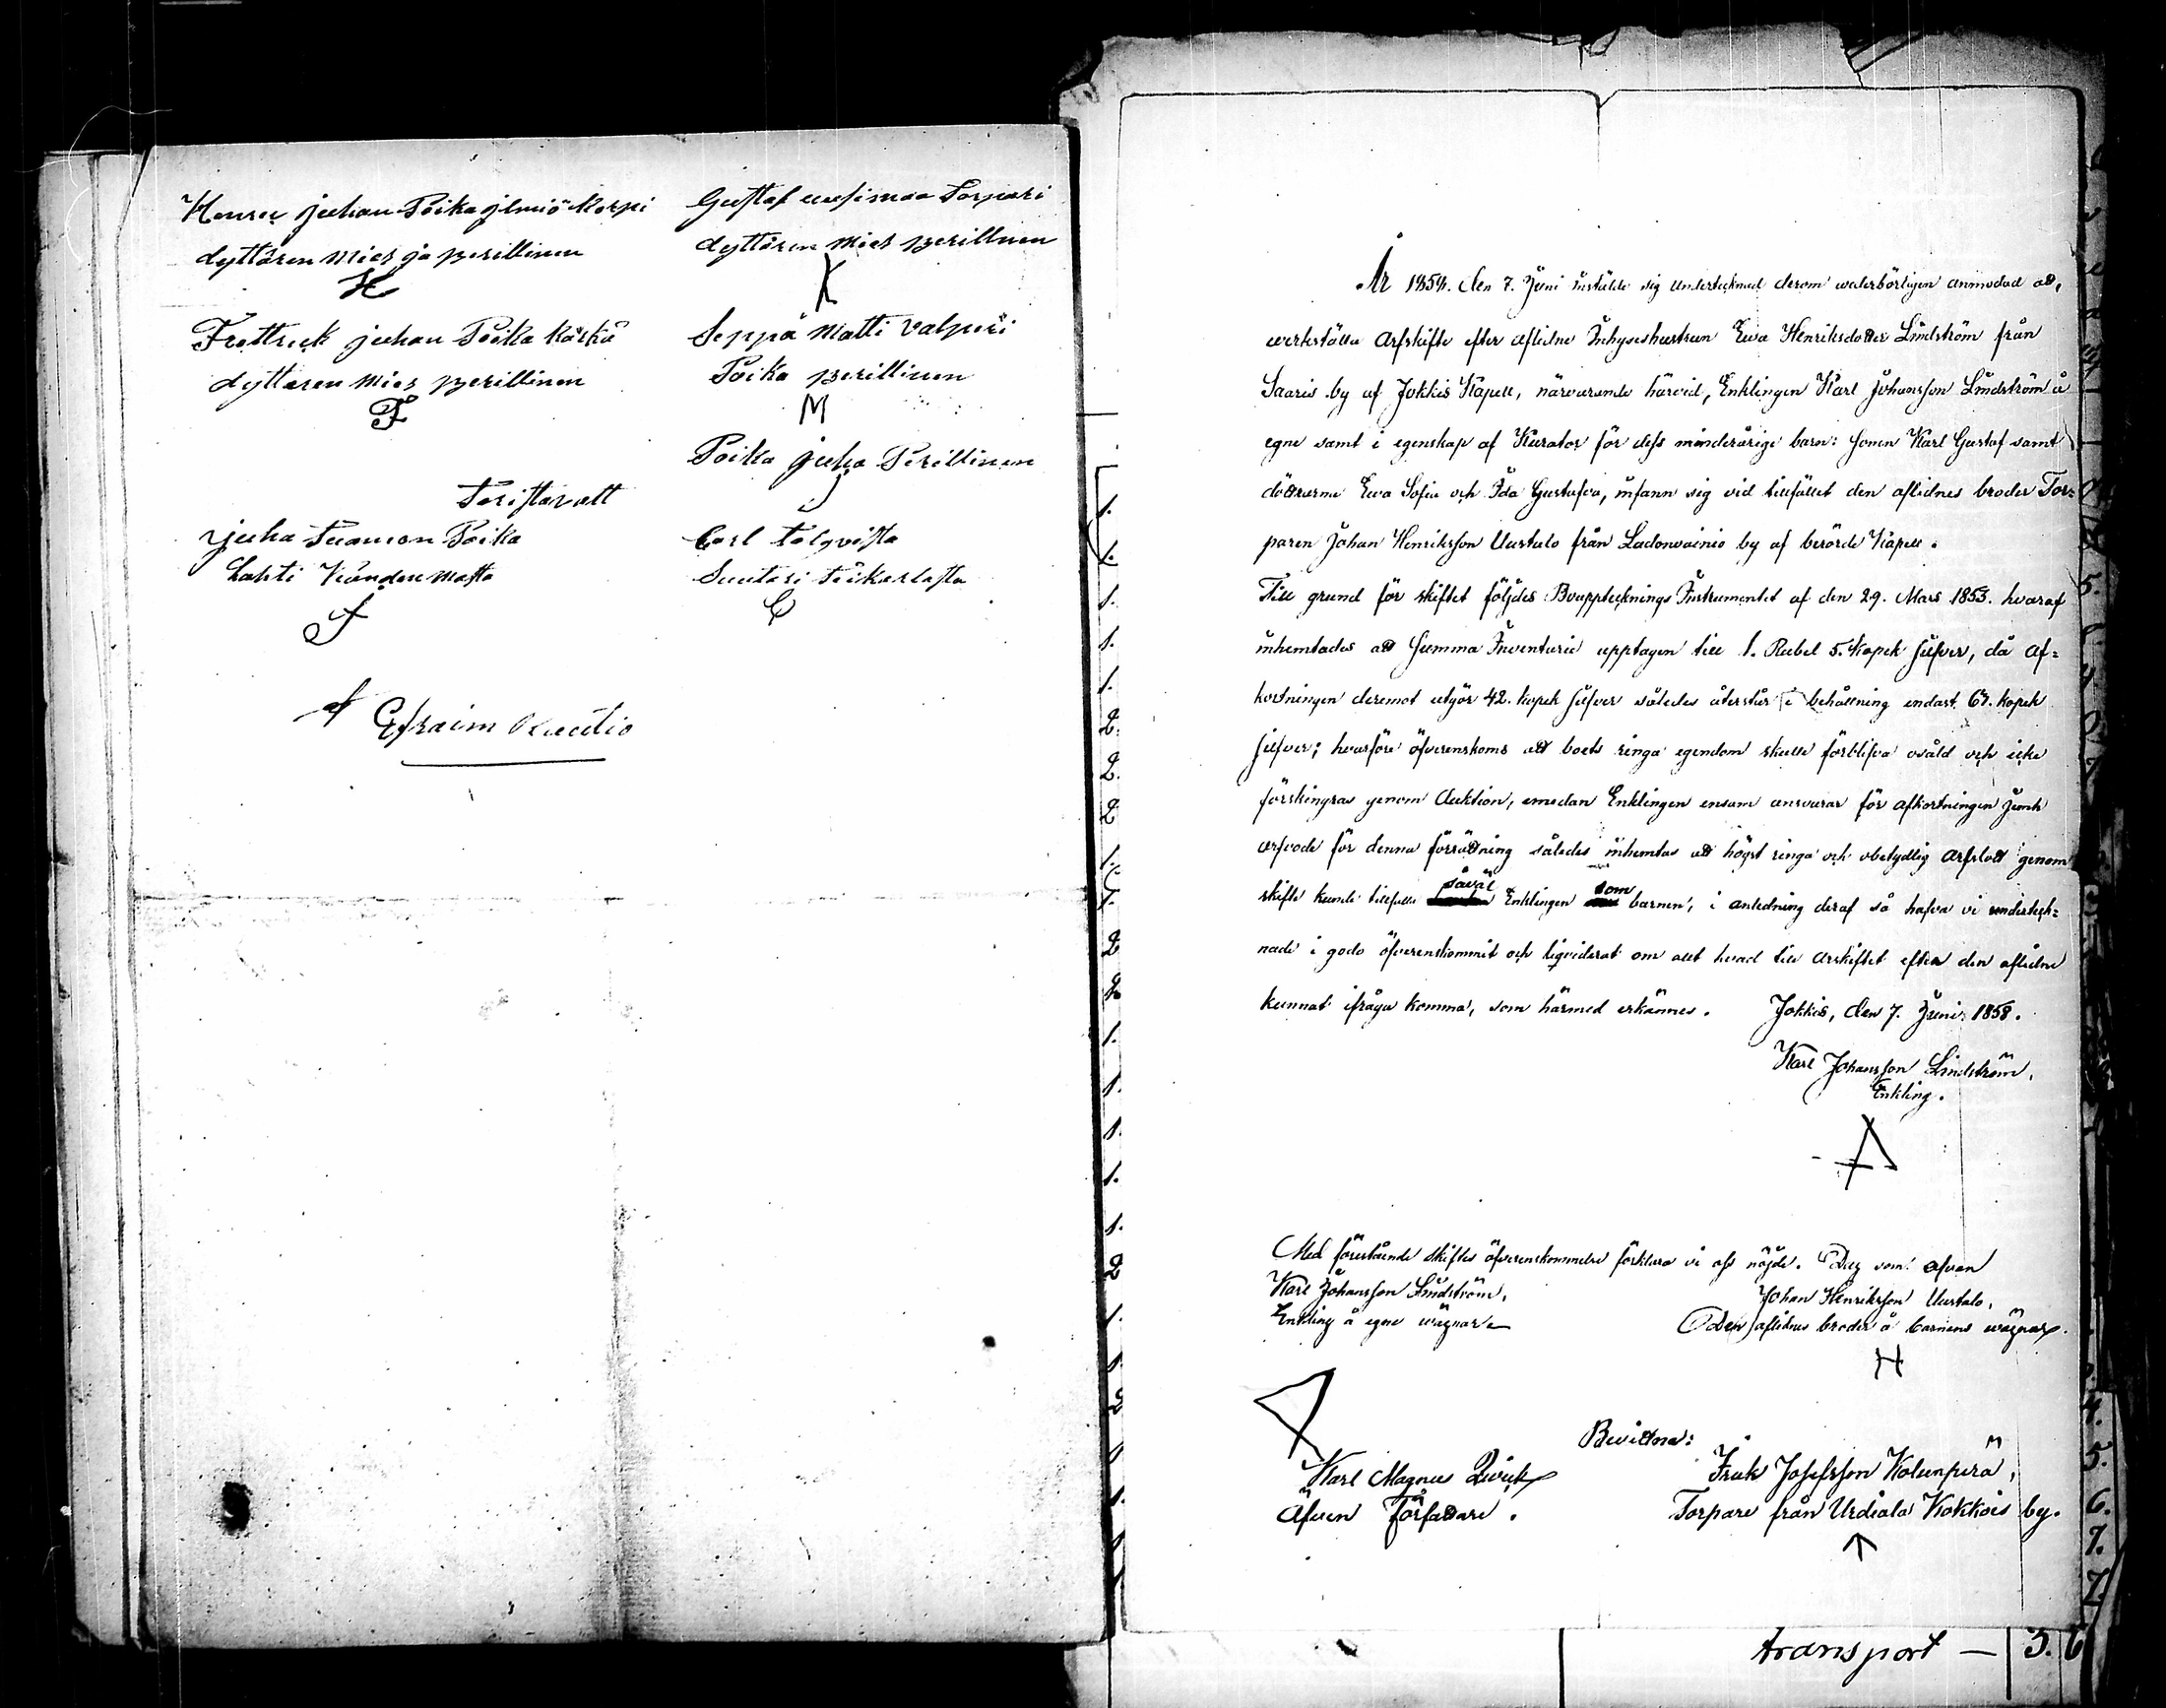 Henric juhan Poika jlmiö korpi
dyttären mies ja perillinen
H
Frettrick juhan Poika kärki
dyttären mies perillinen
F
Gustaf uusimaa Torpari
dyttären mies perillinen
K
Seppä Matti Valpuri
Poika perillinen
M
Poika juha Perillinen
J
Toristavatt
juha Tuamon Poika
Lahti
Carl
Suutari
C
Efraim
År 1858. den 7. Juni instälde sig undertecknad derom wederbörligen anmodad att,
werkställa Arfskifte efter aflidne Inhyseshustrun Ewa Henriksdotter Lindström från
Saaris by af Jokkis Kapell, närvarande härvid, Enklingen Karl Johansson Lindström å
egne samt i egenskap af Kurator för dess minderårige barn: Sonen Karl Gustaf samt
döttrarne Ewa Sofia och Ida Gustafva, infann sig vid tillfället den aflidnes broder Tor=
paren Johan Henriksson Uustalo från Ladonwainio by af berörde Kapell.
Till grund för skiftet följdes Bouppteknings Instrumentet af den 29. Mars 1853. hvaraf
inhemtades att Summa Inventurie upptagen till 1. Rubel 5. kopek Silfver, då Af=
kortningen deremot utgör 42. kopek Silfver således återstår i behållning endast 63. kopek
Silfver; hvarföre öfverenskoms att boets ringa egendom skulle förblifva osåld och icke
förskingras genom Auktion, emedan Enklingen ensam ansvarar för afkortningen Jemte
arfvode för denna förrättning således inhemtas att högst ringa och obetydlig Arfslott genom
skifte kunde tillfalla såväl Enklingen som barnen, i anledning deraf så hafva vi underteck=
nade i godo öfverenskommit och liqviderat om allt hvad till Arskiftet efter den aflidne
kunnat ifråga komma, som härmed erkännes. Jokkis, den 7. Juni 1858.
Karl Johansson Lindström,
Enkling.
Med förestående Skiftes öfverenskommelse förklara vi oss nöjde. Dag som ofvan
Karl Johansson Lindström,
Enkling å egne wägnar
Johan Henriksson Uustalo,
Den aflidnes broder å barnens wägnar.
H
Bevittna:
Karl Magnus
Äfven Författare.
Isak Josefsson Kolunperä,
Torpare från Urdiala Kokkois by.
transport — 3. 6